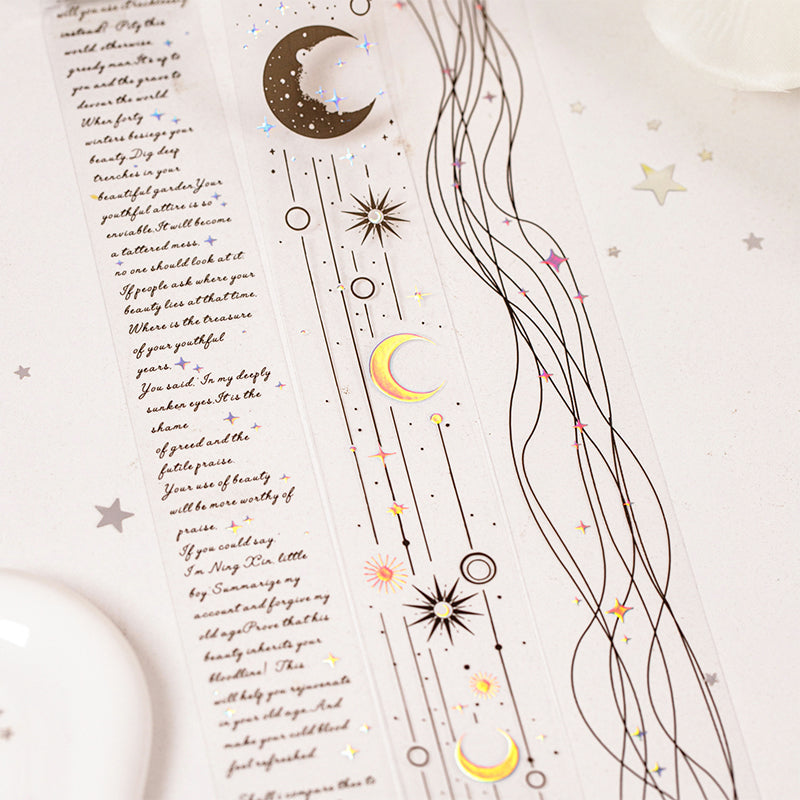 will you use it recklessly
instead? Pity this
world otherwise.
greedy man.It's up to
you and the grave to
devour the world
When forty
winters besiege your
beauty.Dig deep
trenches in your
beautiful garden.Your
youthful attire is so
enviable.It will become
a tattered mess.
no one should look at it.
If people ask where your
beauty lies at that time.
Where is the treasure
of your youthful
years.
You said.'In my deeply
sunken eyes.It is the
shame
of greed and the
futile praise.
Your use of beauty
will be more worthy of
praise.
If you could say,'
I'm Ning Xin, little
boy.Summarize my
account and forgive my
old age.Prove that his
beauty inherits your
bloodline! This
will help you rejuvenate
in your old age.And
make your cold blood
feel refreshed.
Shall i compare thee to